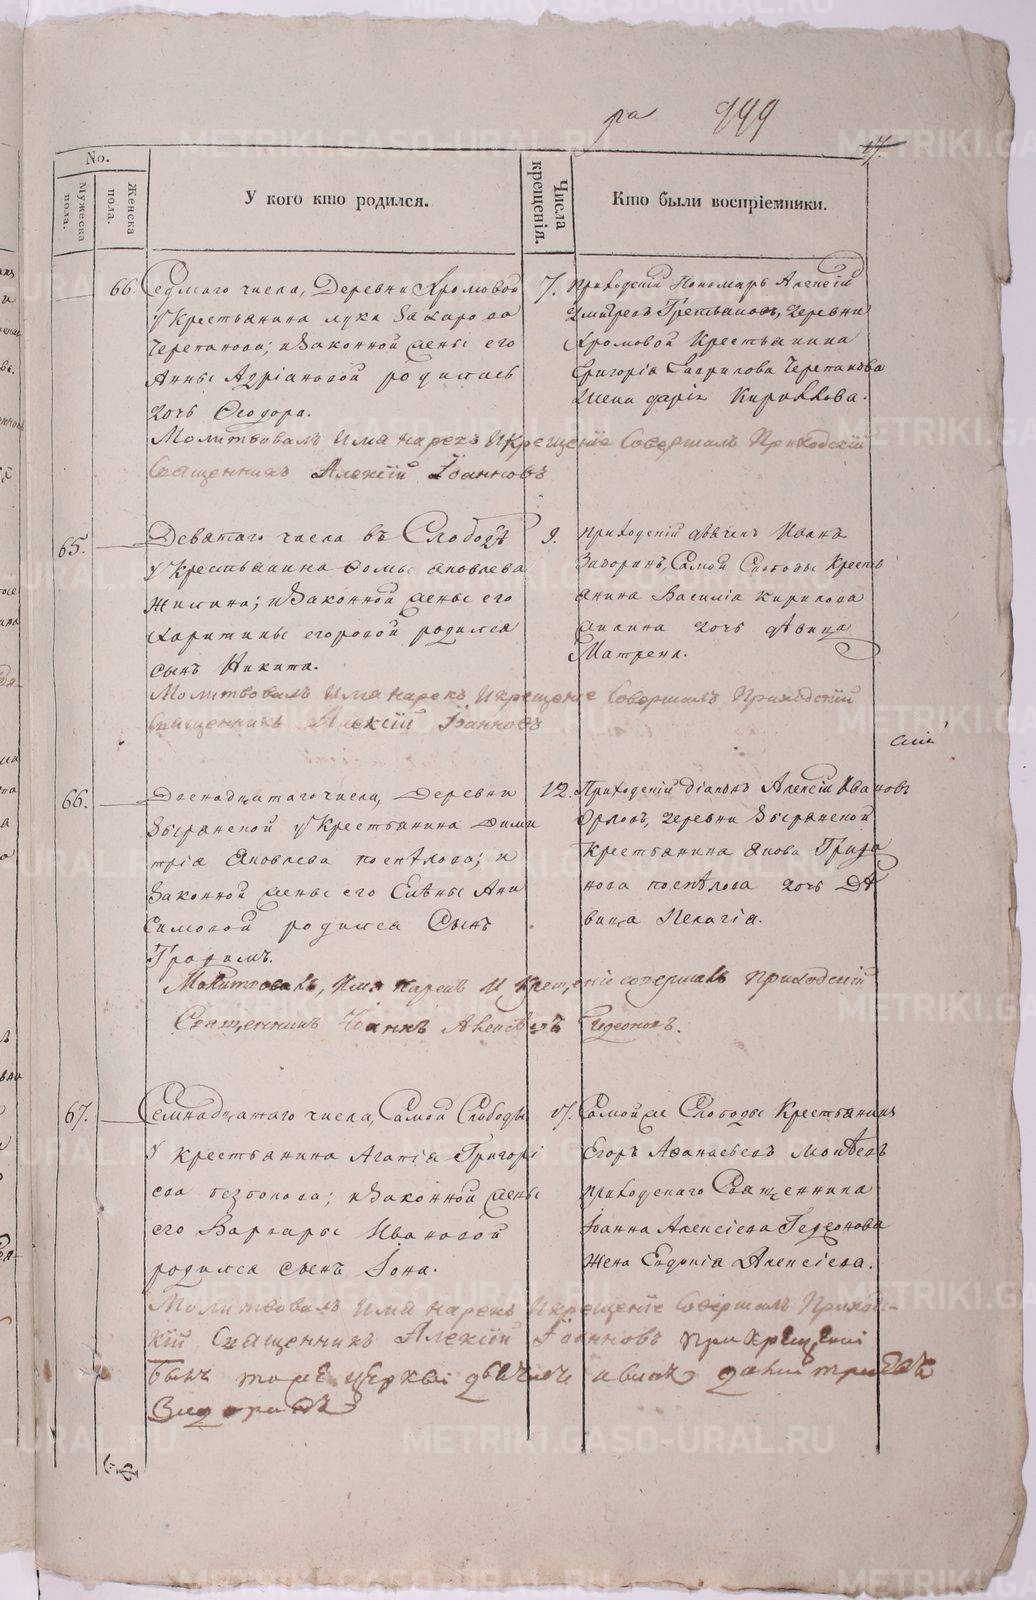 999
17.
No.
Мужеска пола.
Женска пола.
У кого кто родился.
Числа крещенія.
Кто были воспріемники.
66.
Седмаго числа, Деревни Хромовой
у Крестьянина Луки Захарова
Черепанова; и Законной жены его
Анны Адріановой родилась
дочь Ѳеодора.
Молитвовалъ Имя нарекъ И крещеніе Совершалъ Приходскій
Священникъ Алексій Іоанновъ
7.
Приходскій Пономарь Алексій
Дмитревъ Третьяковъ, деревни
Хромовой Крестьянина
Григорія Гаврилова Черепанова
Жена Дарія Кирилова.
65.
Девятаго числа въ Слободѣ
у Крестьянина Ѳомы Яковлева
Жилина; и Законной жены его
Харитины Егоровой родился
сынъ Никита.
Молитвовалъ Имя нарекъ И крещеніе Совершалъ Приходскій
Священникъ Алексій Іоанновъ
9.
Приходскій дьячекъ Иоанъ
Самой Слободы Кресть
янина Василія Кирилова
дочь дѣвица
Матрена.
66.
Двенадцатаго числа, Деревни
у Крестьянина Дими
трія Яковлева Поспѣлова; и
Законной жены его Елѣны Ани
симовой родился Сынъ
Молитвовалъ, Имя нарекъ И крещеніе совершалъ приходскій
Священникъ Іоаннъ Алексѣевъ Гедеоновъ.
12.
Приходскій діаконъ Алексій Ивановъ
Орловъ, деревни
Крестьянина Якова
нова Поспѣлова дочь Дѣ
вица Пелагія.
67.
Семнадцатаго числа, Самой Слободы
у Крестьянина Агапія Григорі
ева; и Законной жены
его Варвары Ивановой
родился сынъ Іона.
Молитвовалъ Имя нарекъ И крещеніе Совершалъ Приход-
скій Священникъ Алексій Іоанновъ при Крещеніи
былъ тоже церкви
17.
Самой же Слободы Крестьянинъ
Егоръ Афанасьевъ
приходскаго Священника
Іоанна Алексіева Гедеонова
Жена Евдокія Алексіева.
METRIKI.GASO-URAL.RU